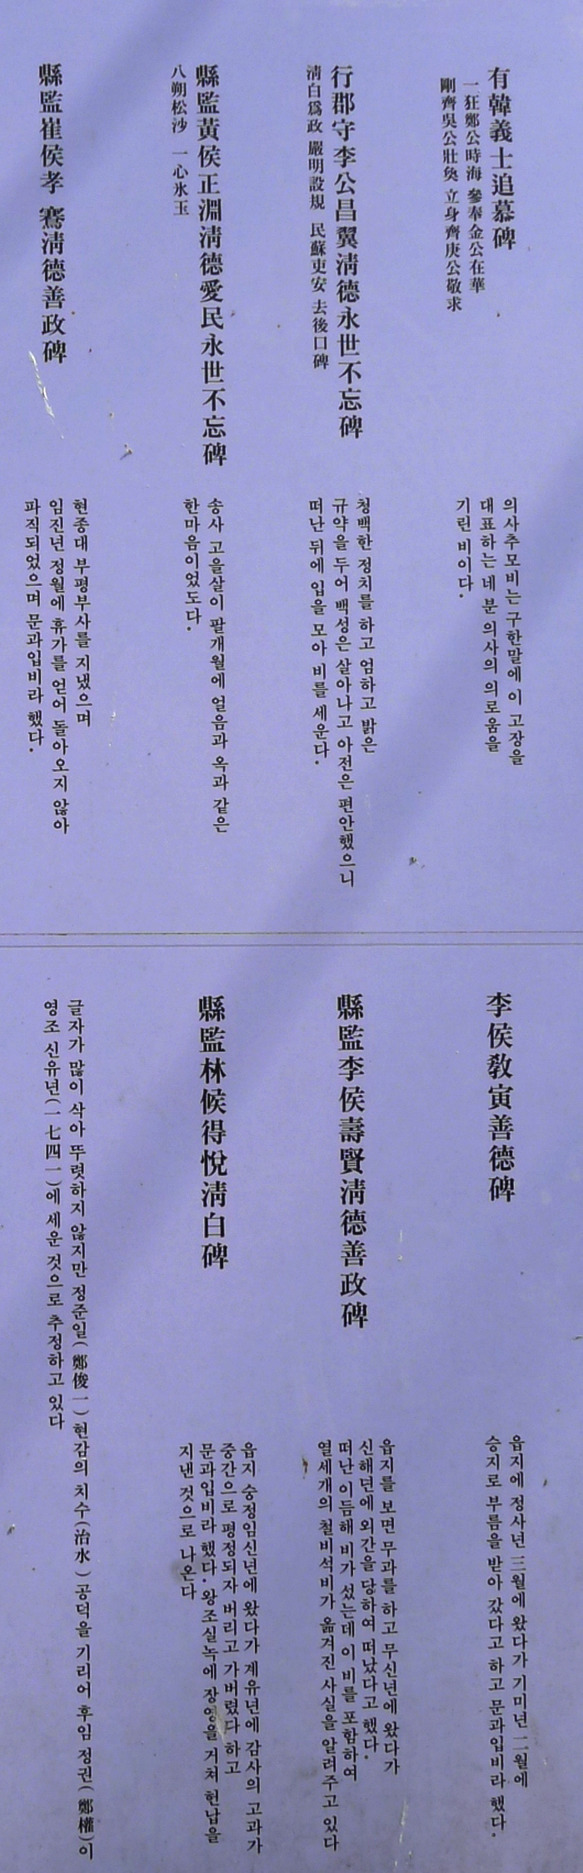 有韓義士追慕碑
一狂鄭公時海 參奉金公在華
剛齊吳公壯奐 立身齊庚公敬求
의사추모비는 구한말에 이 고장을
대표하는 네 분 의사의 의로움을
기린 비이다.
行郡守李公昌翼淸德永世不忘碑
淸白爲政 嚴明設規 民蘇吏安 去後口碑
청백한 정치를 하고 엄하고 밝은
규약을 두어 백성은 살아나고 아전은 편안했으니
떠난 뒤에 입을 모아 비를 세운다.
縣監黃侯正淵淸德愛民永世不忘碑
八朔松沙 一心氷玉
송사 고을살이 팔개월에 얼음과 옥과 같은
한마음이었도다.
縣監崔侯孝 騫淸德善政碑
현종대 부평부사를 지냈으며
임진년 정월에 휴가를 얻어 돌아오지 않아
파직되었으며 문과입비라 했다.
李侯敎寅善德碑
읍지에 정사년 三월에 왔다가 기미년 二월에
승지로 부름을 받아 갔다고 하고 문과입비라 했다.
縣監李侯壽賢淸德善政碑
읍지를 보면 무과를 하고 무신년에 왔다가
신해년에 외간을 당하여 떠났다고 했다.
떠난 이듬해 비가 섰는데 이 비를 포함하여
열세개의 철비석비가 옮겨진 사실을 알려주고 있다
縣監林候得悅淸白碑
읍지 숭정임신년에 왔다가 계유년에 감사의 고과가
중간으로 평정되자 버리고 가버렸다 하고
문과입비라 했다. 왕조실녹에 장영을 거쳐 헌납을
지낸 것으로 나온다
글자가 많이 삭아 뚜렷하지 않지만 정준일(鄭俊一)현감의 치수(治水)공덕을 기리어 후임 정권(鄭權)이
영조 신유년(一七四一)에 세운 것으로 추정하고 있다